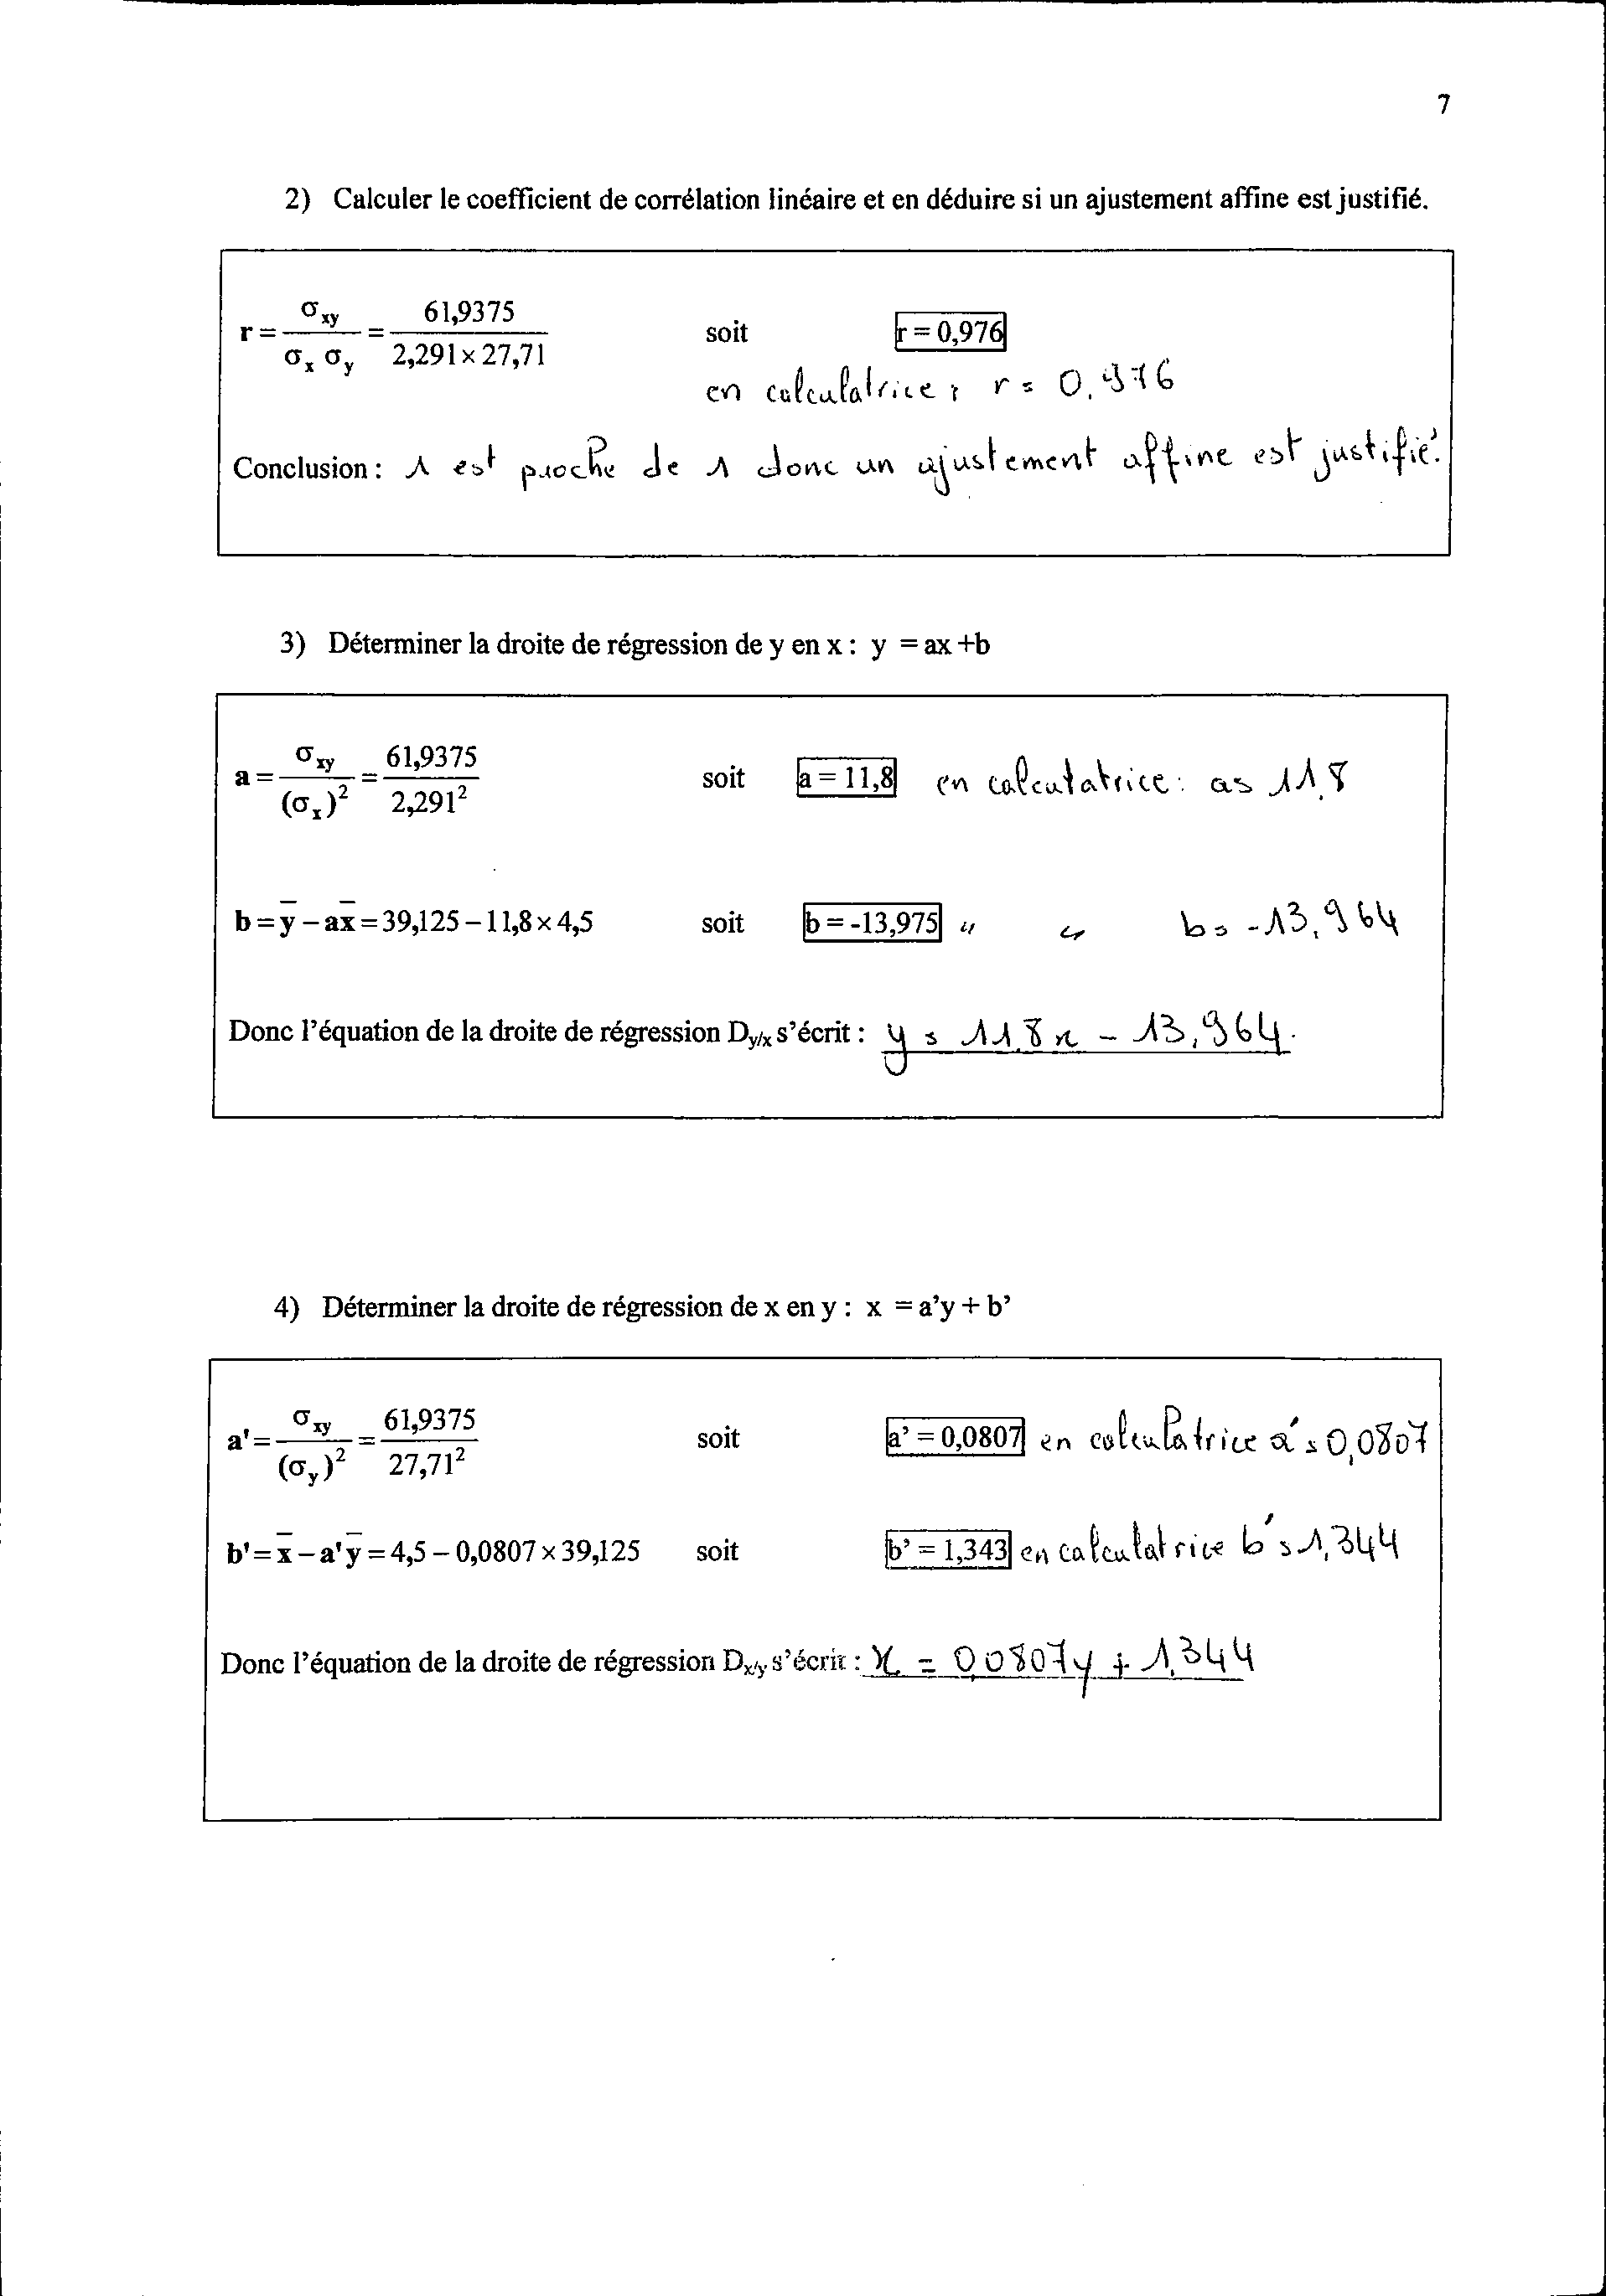 7
2) Calculer le coefficient de corrélation linéaire et en déduire si un ajustement affine est justifié.
r = σxy / (σx σy) = 61,9375 / (2,291 × 27,71) soit r = 0,976
en calculatrice : r = 0,976
Conclusion : 1 est proche de 1 donc un ajustement affine est justifié.
3) Déterminer la droite de régression de y en x : y = ax +b
a = σxy / (σx)² = 61,9375 / 2,291² soit a = 11,8 en calculatrice : a = 11,8
b = y̅ – ax̅ = 39,125 – 11,8 × 4,5 soit b = -13,975 " " b = -13,964
Donc l’équation de la droite de régression Dy/x s’écrit : y = 11,8x - 13,964.
4) Déterminer la droite de régression de x en y : x = a’y + b’
a' = σxy / (σy)² = 61,9375 / 27,71² soit a’ = 0,0807 en calculatrice a' = 0,0807
b' = x̅ – a' y̅ = 4,5 – 0,0807 × 39,125 soit b’ = 1,343 en calculatrice b' = 1,344
Donc l’équation de la droite de régression Dx/y s’écrit : x = 0,0807y + 1,344